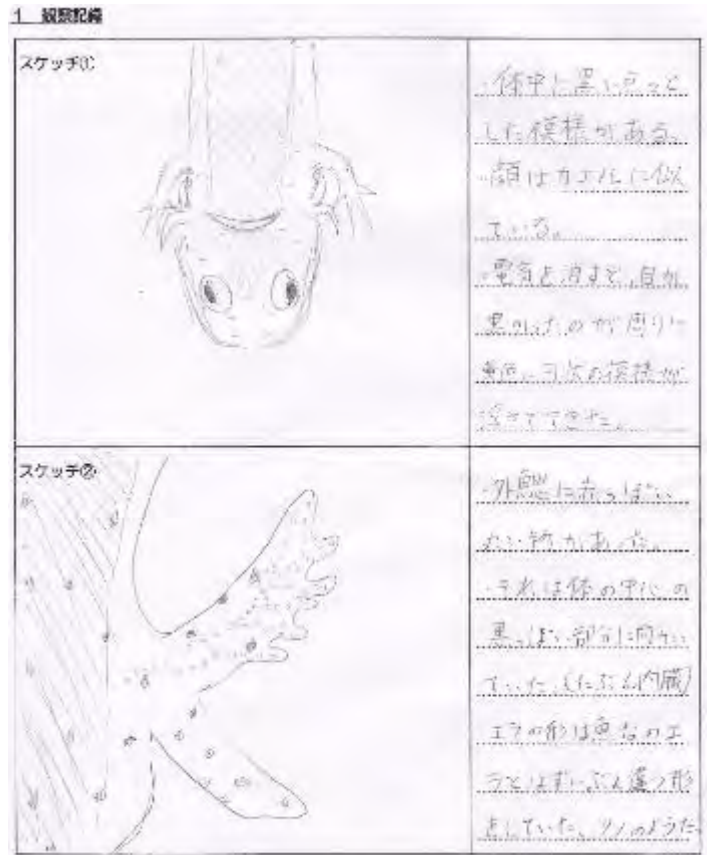 1 観察記録
スケッチ①
・体中に黒い点々と
した模様がある。
・顔はカエルに似
ている。
・電気を消すと、目が
黒かったのが周りに
の模様が
浮きでてきた。
スケッチ②
・外鰓に赤っぽい
があった。
・それは体の中心の
黒っぽい部分に向かい
ていた。(たぶん内臓)
エラの形は魚などのエ
ラとはずいぶん違う形
をしていた。ツノのようだ。